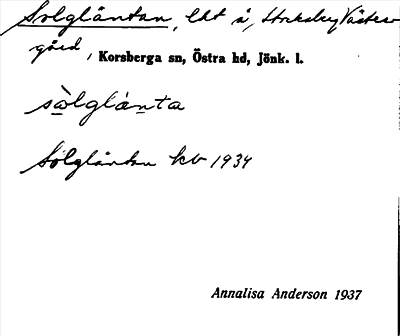 Solgläntan, lht å, Stockeby Väster-
gård, Korsberga sn, Östra hd, Jönk. l.
sòlglànta
Solgläntan kb 1934
Annalisa Anderson 1937